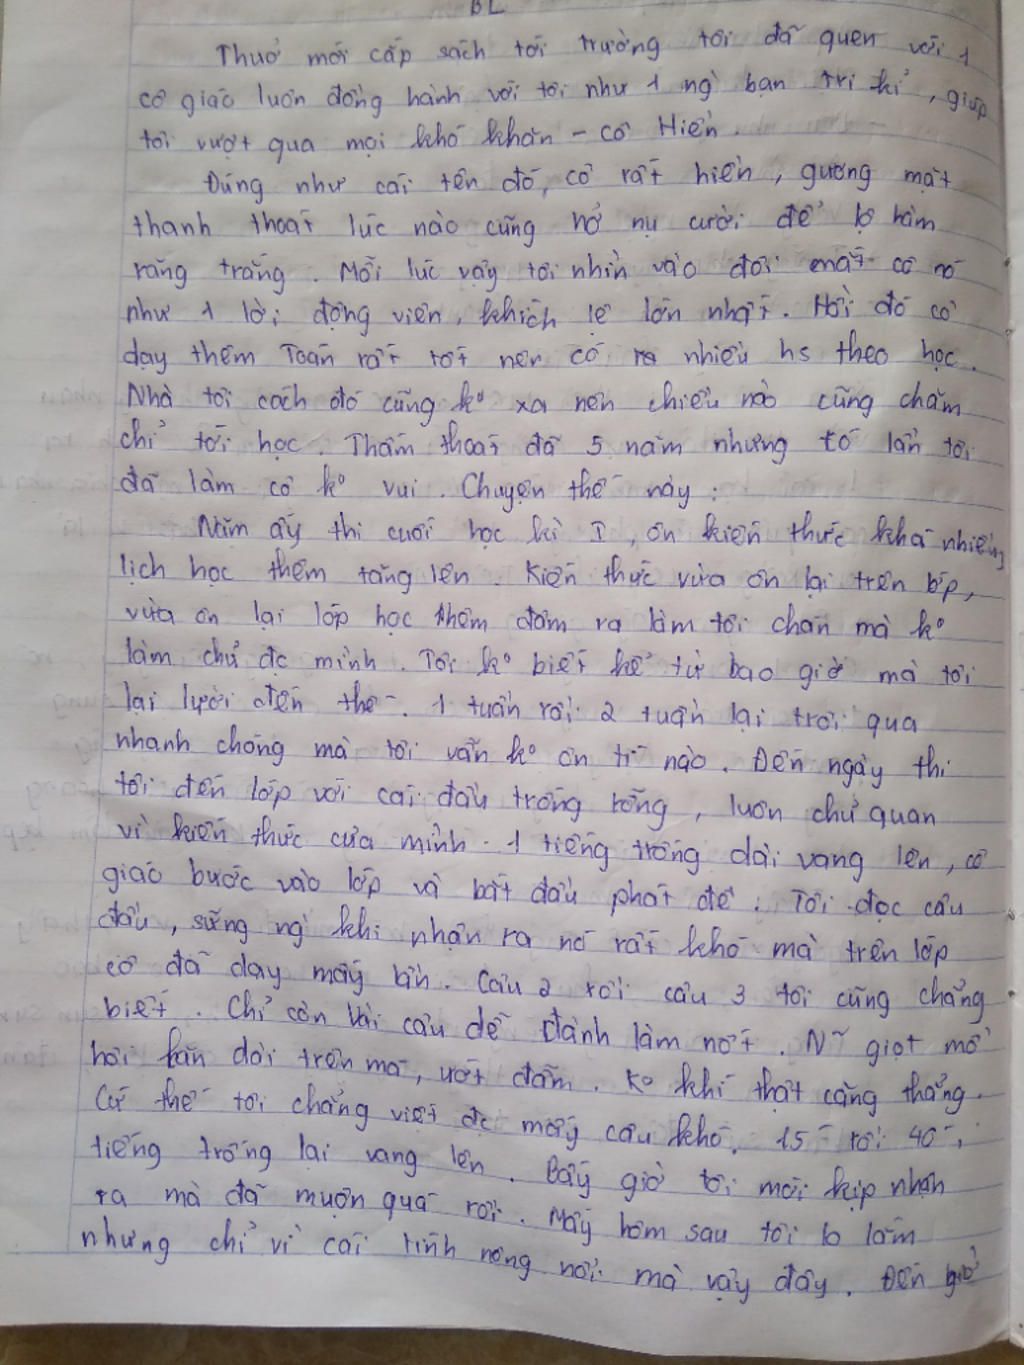 BL
Thuở mới cấp sách tới trường tôi đã quen với 1
cô giáo luôn đồng hành với tôi như 1 ng` bạn tri kỉ, giúp
tôi vượt qua mọi khó khăn - cô Hiền.
Đúng như cái tên đó, cô rất hiền, gương mặt
thanh thoát lúc nào cũng nở nụ cười để lộ hàm
răng trắng. Mỗi lúc vậy tôi nhìn vào đôi mắt cô nó
như 1 lời động viên, khích lệ lớn nhất. Hồi đó cô
dạy thêm Toán rất tốt nên có ra nhiều hs theo học.
Nhà tôi cách đó cũng ko xa nên chiều nào cũng chăm
chỉ tới học. Thấm thoát đã 5 năm nhưng có lần tôi
đã làm cô ko vui. Chuyện thế này:
Năm ấy thi cuối học kì I, ôn kiến thức khá nhiều,
lịch học thêm tăng lên. Kiến thức vừa ôn lại trên lớp,
vừa ôn lại lớp học thêm đâm ra làm tôi chán mà ko
làm chủ đc mình. Tôi ko biết kể từ bao giờ mà tôi
lại lười đến thế. 1 tuần rồi 2 tuần lại trôi qua
nhanh chóng mà tôi vẫn ko ôn tí nào. Đến ngày thi
tôi đến lớp với cái đầu trống rỗng, luôn chủ quan
vì kiến thức của mình. 1 tiếng trống dài vang lên, cô
giáo bước vào lớp và bắt đầu phát đề. Tôi đọc câu
đầu, sững ng` khi nhận ra nó rất khó mà trên lớp
cô đã dạy mấy lần. Câu 2 rồi câu 3 tôi cũng chẳng
biết. Chỉ còn vài câu dễ đành làm nốt. N~ giọt mồ
hôi lăn dài trên má, ướt đẫm. Ko khí thật căng thẳng.
Cứ thế tôi chẳng viết đc mấy câu khó. 15' rồi 40',
tiếng trống lại vang lên. Bấy giờ tôi mới kịp nhận
ra mà đã muộn quá rồi. Mấy hôm sau tôi lo lắm
nhưng chỉ vì cái tính nông nổi mà vậy đấy. Đến giờ